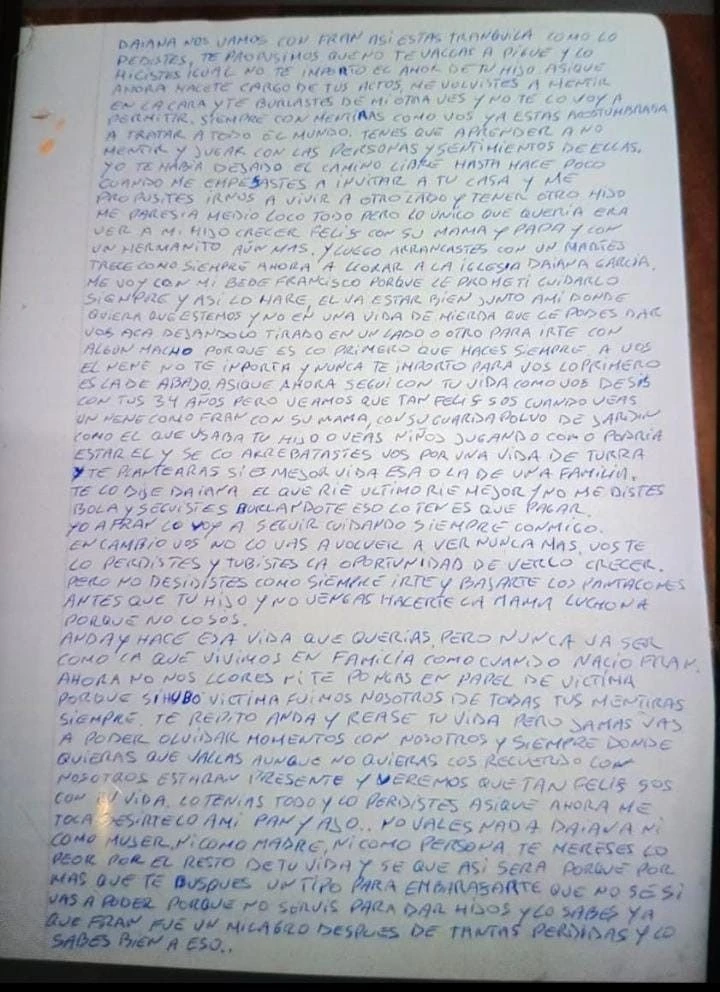 DAIANA NOS VAMOS CON FRAN ASI ESTAS TRANQUILA COMO LO
PEDISTES, TE PROPUSIMOS QUE NO TE VALLAS A PIGUE Y LO
HICISTES IGUAL NO TE IMPORTO EL AMOR DE TU HIJO. ASIQUE
AHORA HACETE CARGO DE TUS ACTOS, ME VOLVISTES A MENTIR
EN LA CARA Y TE BURLASTES DE MI OTRA VES Y NO TE LO VOY A
PERMITIR. SIEMPRE CON MENTIRAS COMO VOS YA ESTAS ACOSTUMBRADA
A TRATAR A TODO EL MUNDO. TENES QUE APRENDER A NO
MENTIR Y JUGAR CON LAS PERSONAS Y SENTIMIENTOS DE ELLAS.
YO TE HABIA DEJADO EL CAMINO LIBRE HASTA HACE POCO
CUANDO ME EMPESASTES A INVITAR A TU CASA Y ME
PROPUSITES IRNOS A VIVIR A OTRO LADO Y TENER OTRO HIJO
ME PARESIA MEDIO LOCO TODO PERO LO UNICO QUE QUERIA ERA
VER A MI HIJO CRECER FELIS CON SU MAMA Y PAPA Y CON
UN HERMANITO AÚN MAS. Y LUEGO ARRANCASTES CON UN MARTES
TRECE COMO SIEMPRE AHORA A LLORAR A LA IGLESIA DAIANA GARCIA.
ME VOY CON MI BEBE FRANCISCO PORQUE LE PROMETI CUIDARLO
SIEMPRE Y ASI LO HARE, EL VA ESTAR BIEN JUNTO AMI DONDE
QUIERA QUE ESTEMOS Y NO EN UNA VIDA DE MIERDA QUE LE PODES DAR
VOS ACA DEJANDOLO TIRADO EN UN LADO O OTRO PARA IRTE CON
ALGUN MACHO PORQUE ES LO PRIMERO QUE HACES SIEMPRE. A VOS
EL NENE NO TE IMPORTA Y NUNCA TE IMPORTO PARA VOS LO PRIMERO
ES LA DE ABAJO. ASIQUE AHORA SEGUI CON TU VIDA COMO VOS DESIS
CON TUS 34 AÑOS PERO VEAMOS QUE TAN FELIS SOS CUANDO VEAS
UN NENE COMO FRAN CON SU MAMA, CON SU GUARDA POLVO DE JARDIN
COMO EL QUE USABA TU HIJO O VEAS NIÑOS JUGANDO COMO PODRIA
ESTAR EL Y SE LO ARREBATASTES VOS POR UNA VIDA DE TURRA
Y TE PLANTEARAS SI ES MEJOR VIDA ESA O LA DE UNA FAMILIA.
TE LO DIJE DAIANA EL QUE RIE ULTIMO RIE MEJOR Y NO ME DISTES
BOLA Y SEGUISTES BURLANDOTE ESO LO TENES QUE PAGAR.
YO A FRAN LO VOY A SEGUIR CUIDANDO SIEMPRE CONMIGO.
EN CAMBIO VOS NO LO VAS A VOLVER A VER NUNCA MAS. VOS TE
LO PERDISTES Y TUBISTES LA OPORTUNIDAD DE VERLO CRECER.
PERO NO DESIDISTES COMO SIEMPRE IRTE Y BAJARTE LOS PANTALONES
ANTES QUE TU HIJO Y NO VENGAS HACERTE LA MAMA LUCHONA
PORQUE NO LO SOS.
ANDA Y HACE ESA VIDA QUE QUERIAS, PERO NUNCA VA SER
COMO LA QUE VIVIMOS EN FAMILIA COMO CUANDO NACIO FRAN.
AHORA NO NOS LLORES NI TE PONGAS EN PAPEL DE VICTIMA
PORQUE SI HUBO VICTIMA FUIMOS NOSOTROS DE TODAS TUS MENTIRAS
SIEMPRE. TE REPITO ANDA Y REASE TU VIDA PERO JAMAS VAS
A PODER OLVIDAR MOMENTOS CON NOSOTROS Y SIEMPRE DONDE
QUIERAS QUE VALLAS AUNQUE NO QUIERAS LOS RECUERDO CON
NOSOTROS ESTARAN PRESENTE Y VEREMOS QUE TAN FELIS SOS
CON TU VIDA. LO TENIAS TODO Y LO PERDISTES ASIQUE AHORA ME
TOCA DESIRTELO AMI PAN Y AJO.. NO VALES NADA DAIANA NI
COMO MUJER, NI COMO MADRE, NI COMO PERSONA. TE MERESES LO
PEOR POR EL RESTO DE TU VIDA Y SE QUE ASI SERA PORQUE POR
MAS QUE TE BUSQUES UN TIPO PARA EMBARASARTE QUE NO SE SI
VAS A PODER PORQUE NO SERVIS PARA DAR HIJOS Y LO SABES YA
QUE FRAN FUE UN MILAGRO DESPUES DE TANTAS PERDIDAS Y LO
SABES BIEN A ESO..